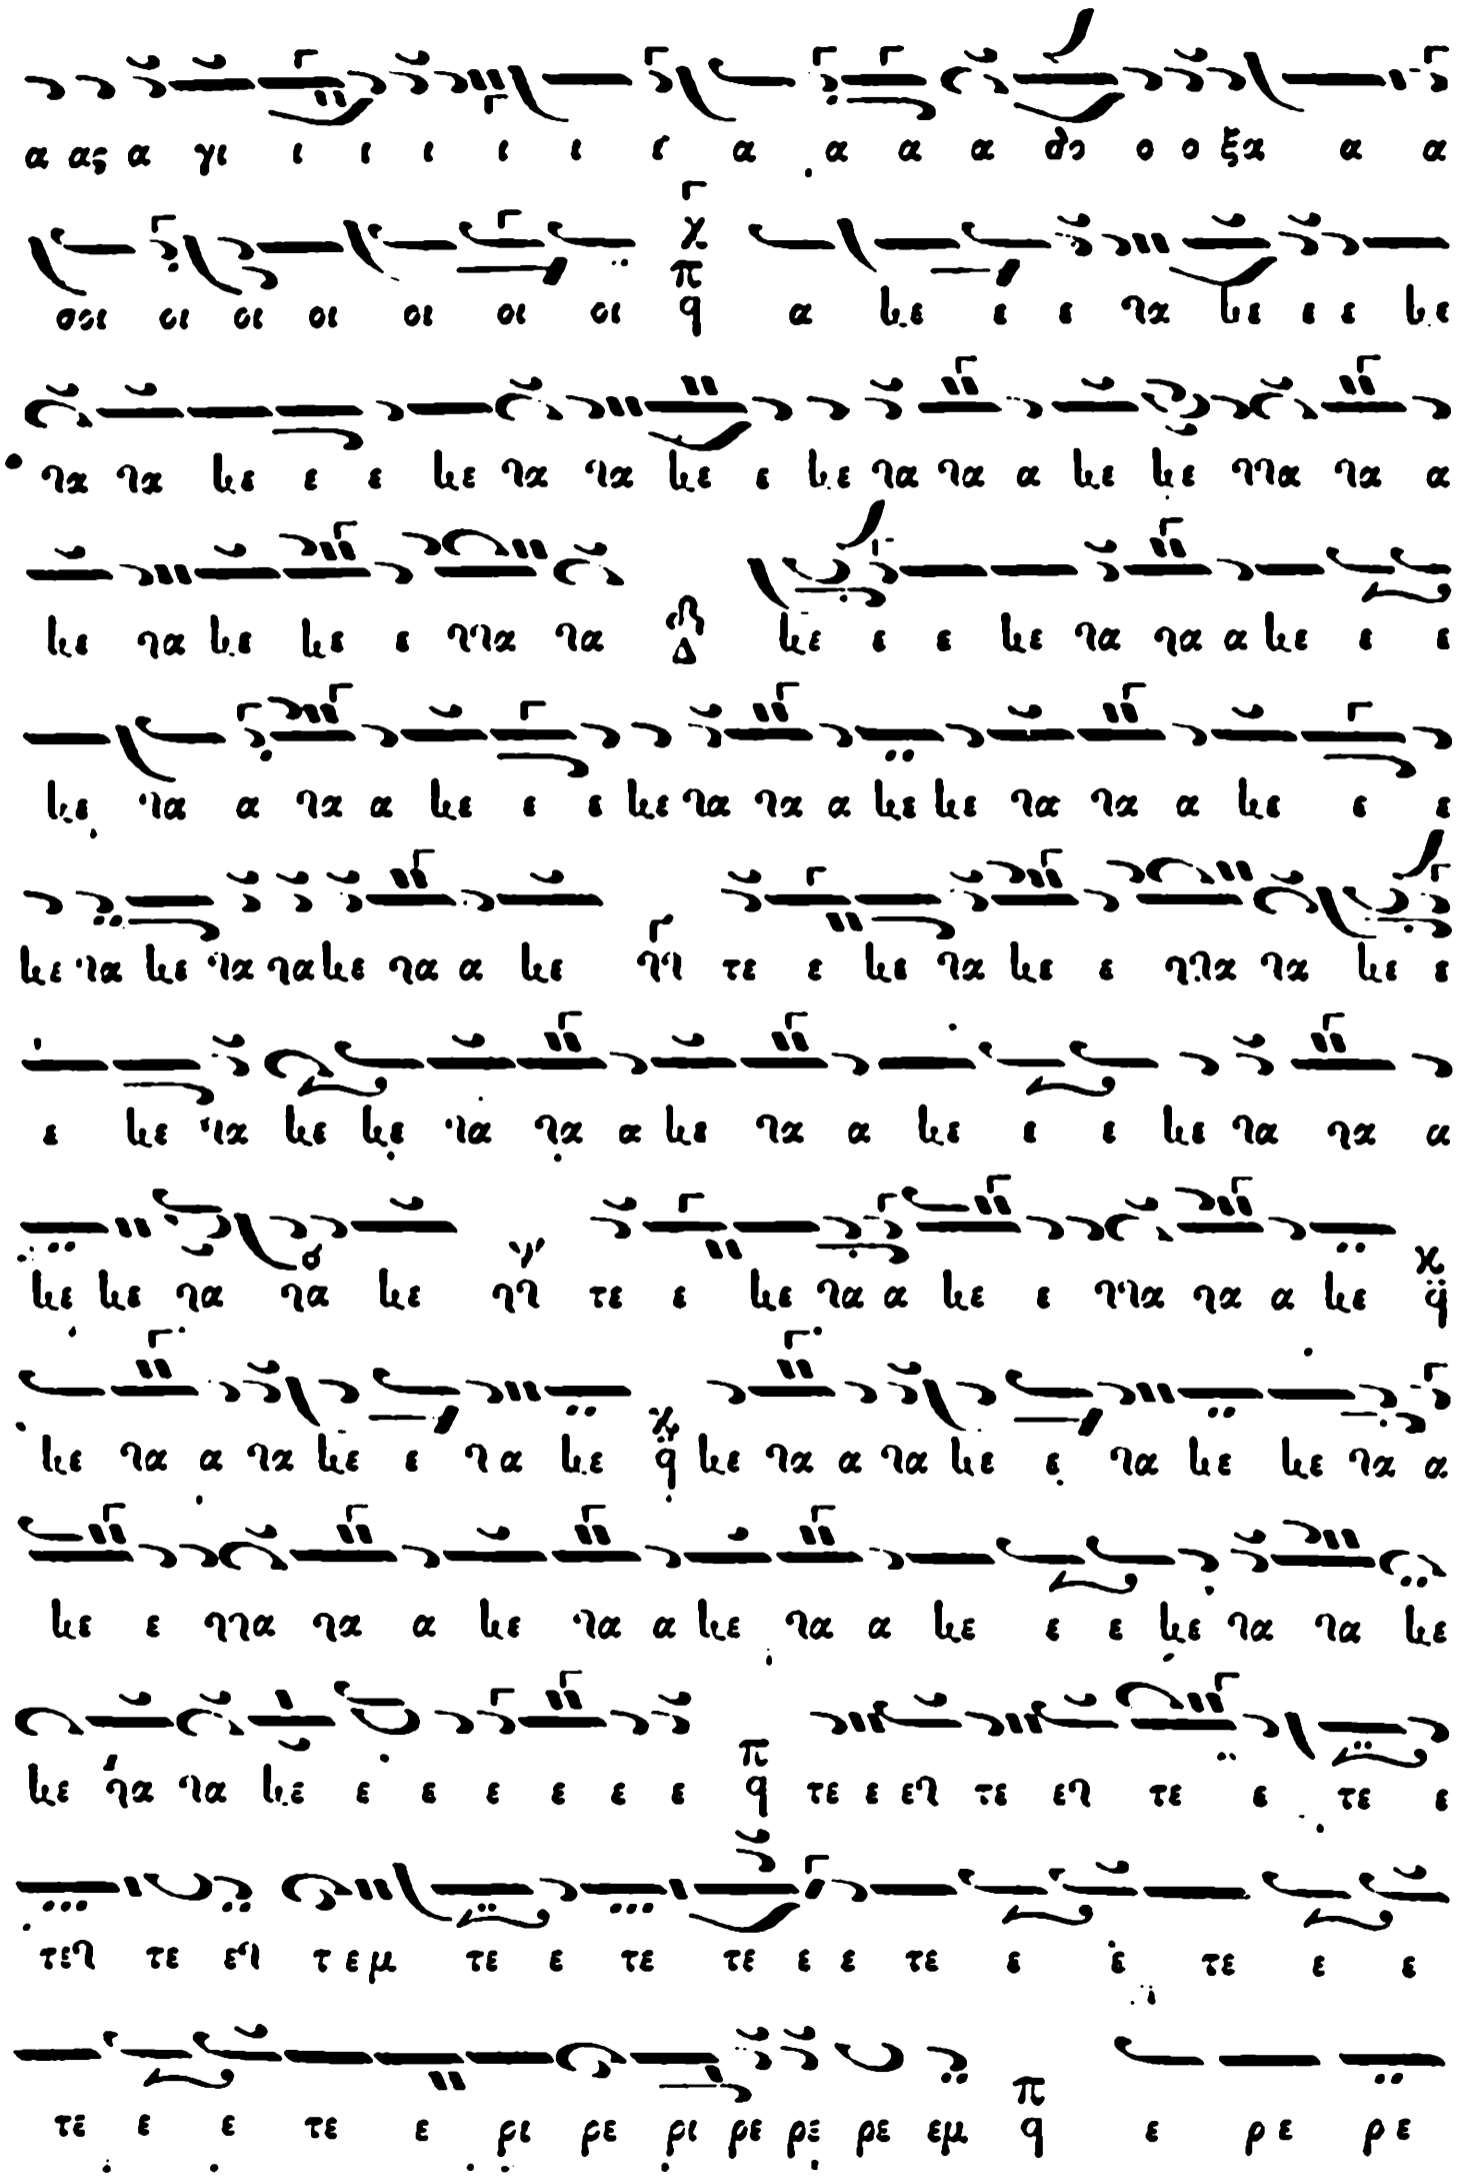 α ας α γι ι ι ι ι ι ι α α α α δο ο ο ξα α α
σοι οι οι οι οι οι οι π q α νε ε ε να νε ε ε νε
να να νε ε ε νε να να νε ε νε να να α νε νε ννα να α
νε να νε νε ε ννα να Δ νε ε ε νε να να α νε ε ε
νε να α να α νε ε ε νε να να α νε νε να να α νε ε ε
νε να νε να να νε να α νε νν τε ε νε να νε ε ννα να νε ε
ε νε να νε νε να να α νε να α νε ε ε νε να να α
νε νε να να νε νν τε ε νε να α νε ε ννα να α νε χ q
νε να α να νε ε να νε χ q νε να α να νε ε να νε νε να α
νε ε ννα να α νε να α νε να α νε ε ε νε να να νε
νε να να νε ε ε ε ε ε ε π q τε ε εν τε εν τε ε τε ε
τεν τε εν τεμ τε ε τε τε ε ε τε ε ε τε ε ε
τε ε ε τε ε ρι ρε ρι ρε ρε ρε εμ π q ε ρε ρε